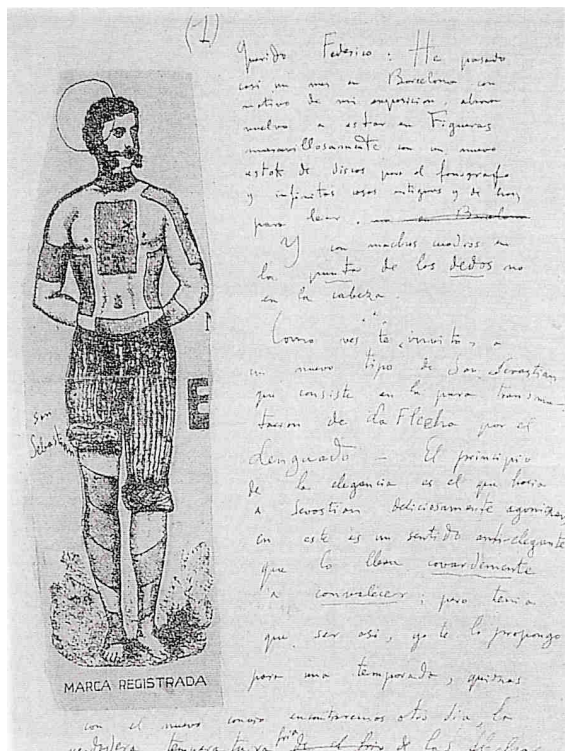 (1)
Querido Federico: He pasado
casi un mes en Barcelona con
motivo de mi exposicion, ahora
vuelvo a estar en Figueras
maravillosamente con un nuevo
estok de discos para el fonografo
y infinitas cosas antiguas y de hoy
para leer. en Barcelona
Y con muchos cuadros en
la punta de los dedos no
en la cabeza.
Como ves te 'invito' a
un nuevo tipo de San Sevastian,
que consiste en la pura transmu-
tacion de La Flecha por el
Lenguado — El principio
de la elegancia es el que hacia
a Sevastian deliciosamente agonizar,
en este es un sentido anti-elegante
que lo lleva covardemente
a convalecer; pero tenia
que ser asi, yo te lo propongo
para una temporada, quizas
con el nuevo encontraremos otro dia, la
verdadera temperatura fria de las flechas
san
Sebastian
N
E
MARCA REGISTRADA